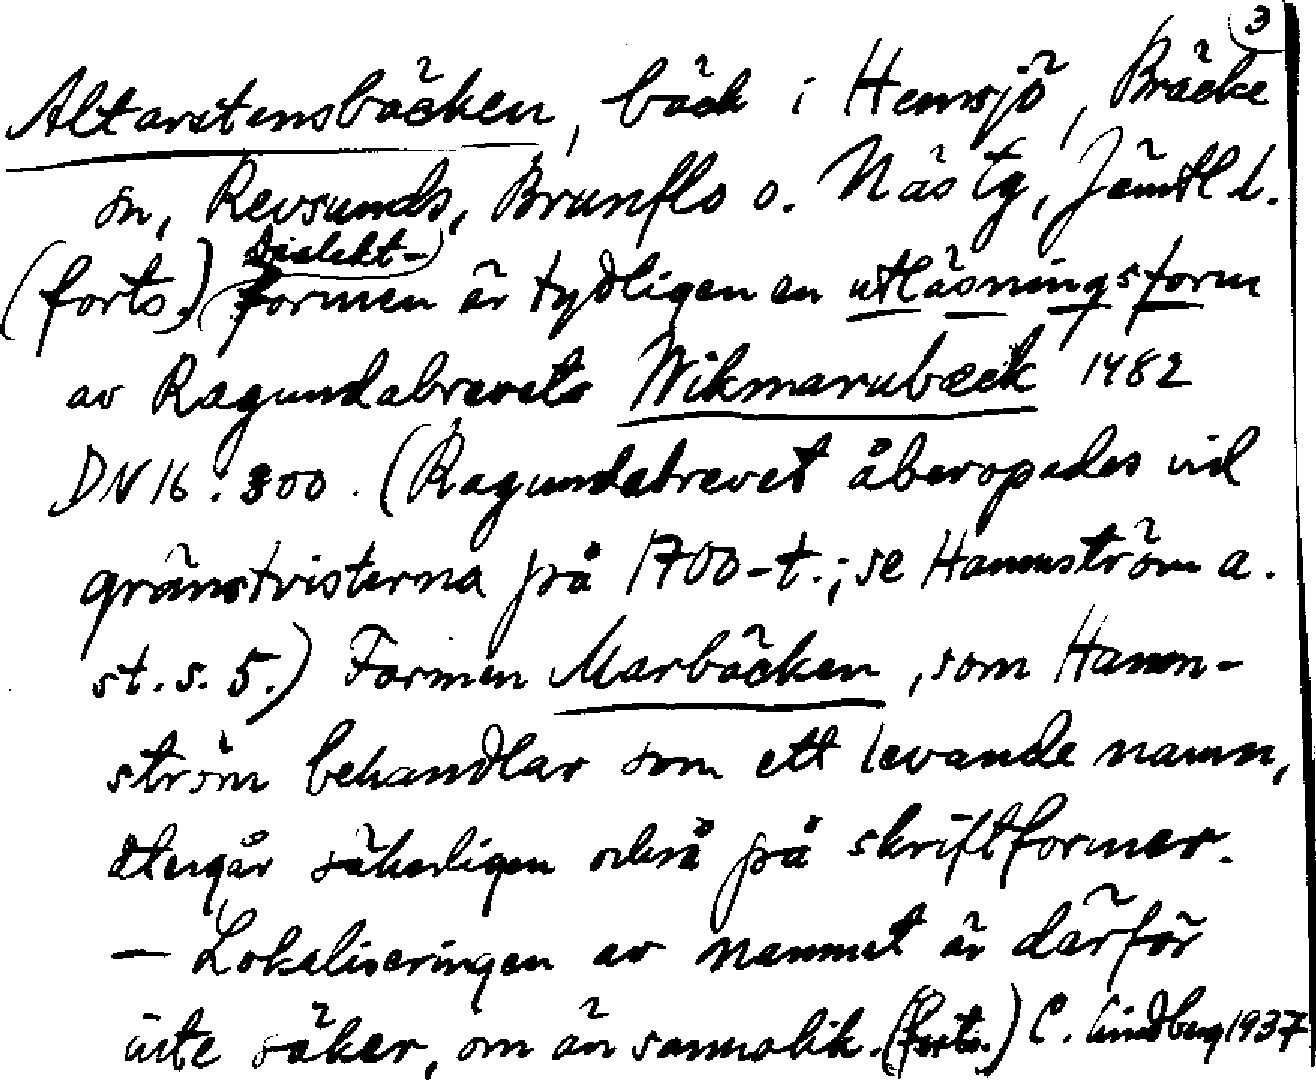 3
Altarstensbäcken, bäck i Hemsjö, Bräcke
sn, Revsunds, Brunflo o. Näs tg, Jämtl l.
(forts.) Dialekt-
formen är tydligen en utläsningsform
av Ragundabrevets Wikmarubæck 1482
DN 16:300. (Ragundabrevet åberopades vid
gränstvisterna på 1700-t.; se Hammström a.
st. s. 5.) Formen Marbäcken, som Hamm-
ström behandlar som ett levande namn,
återgår säkerligen också på skriftformer.
– Lokaliseringen av namnet är därför
inte säker, om än sannolik. (forts.) C. Lindberg 1937